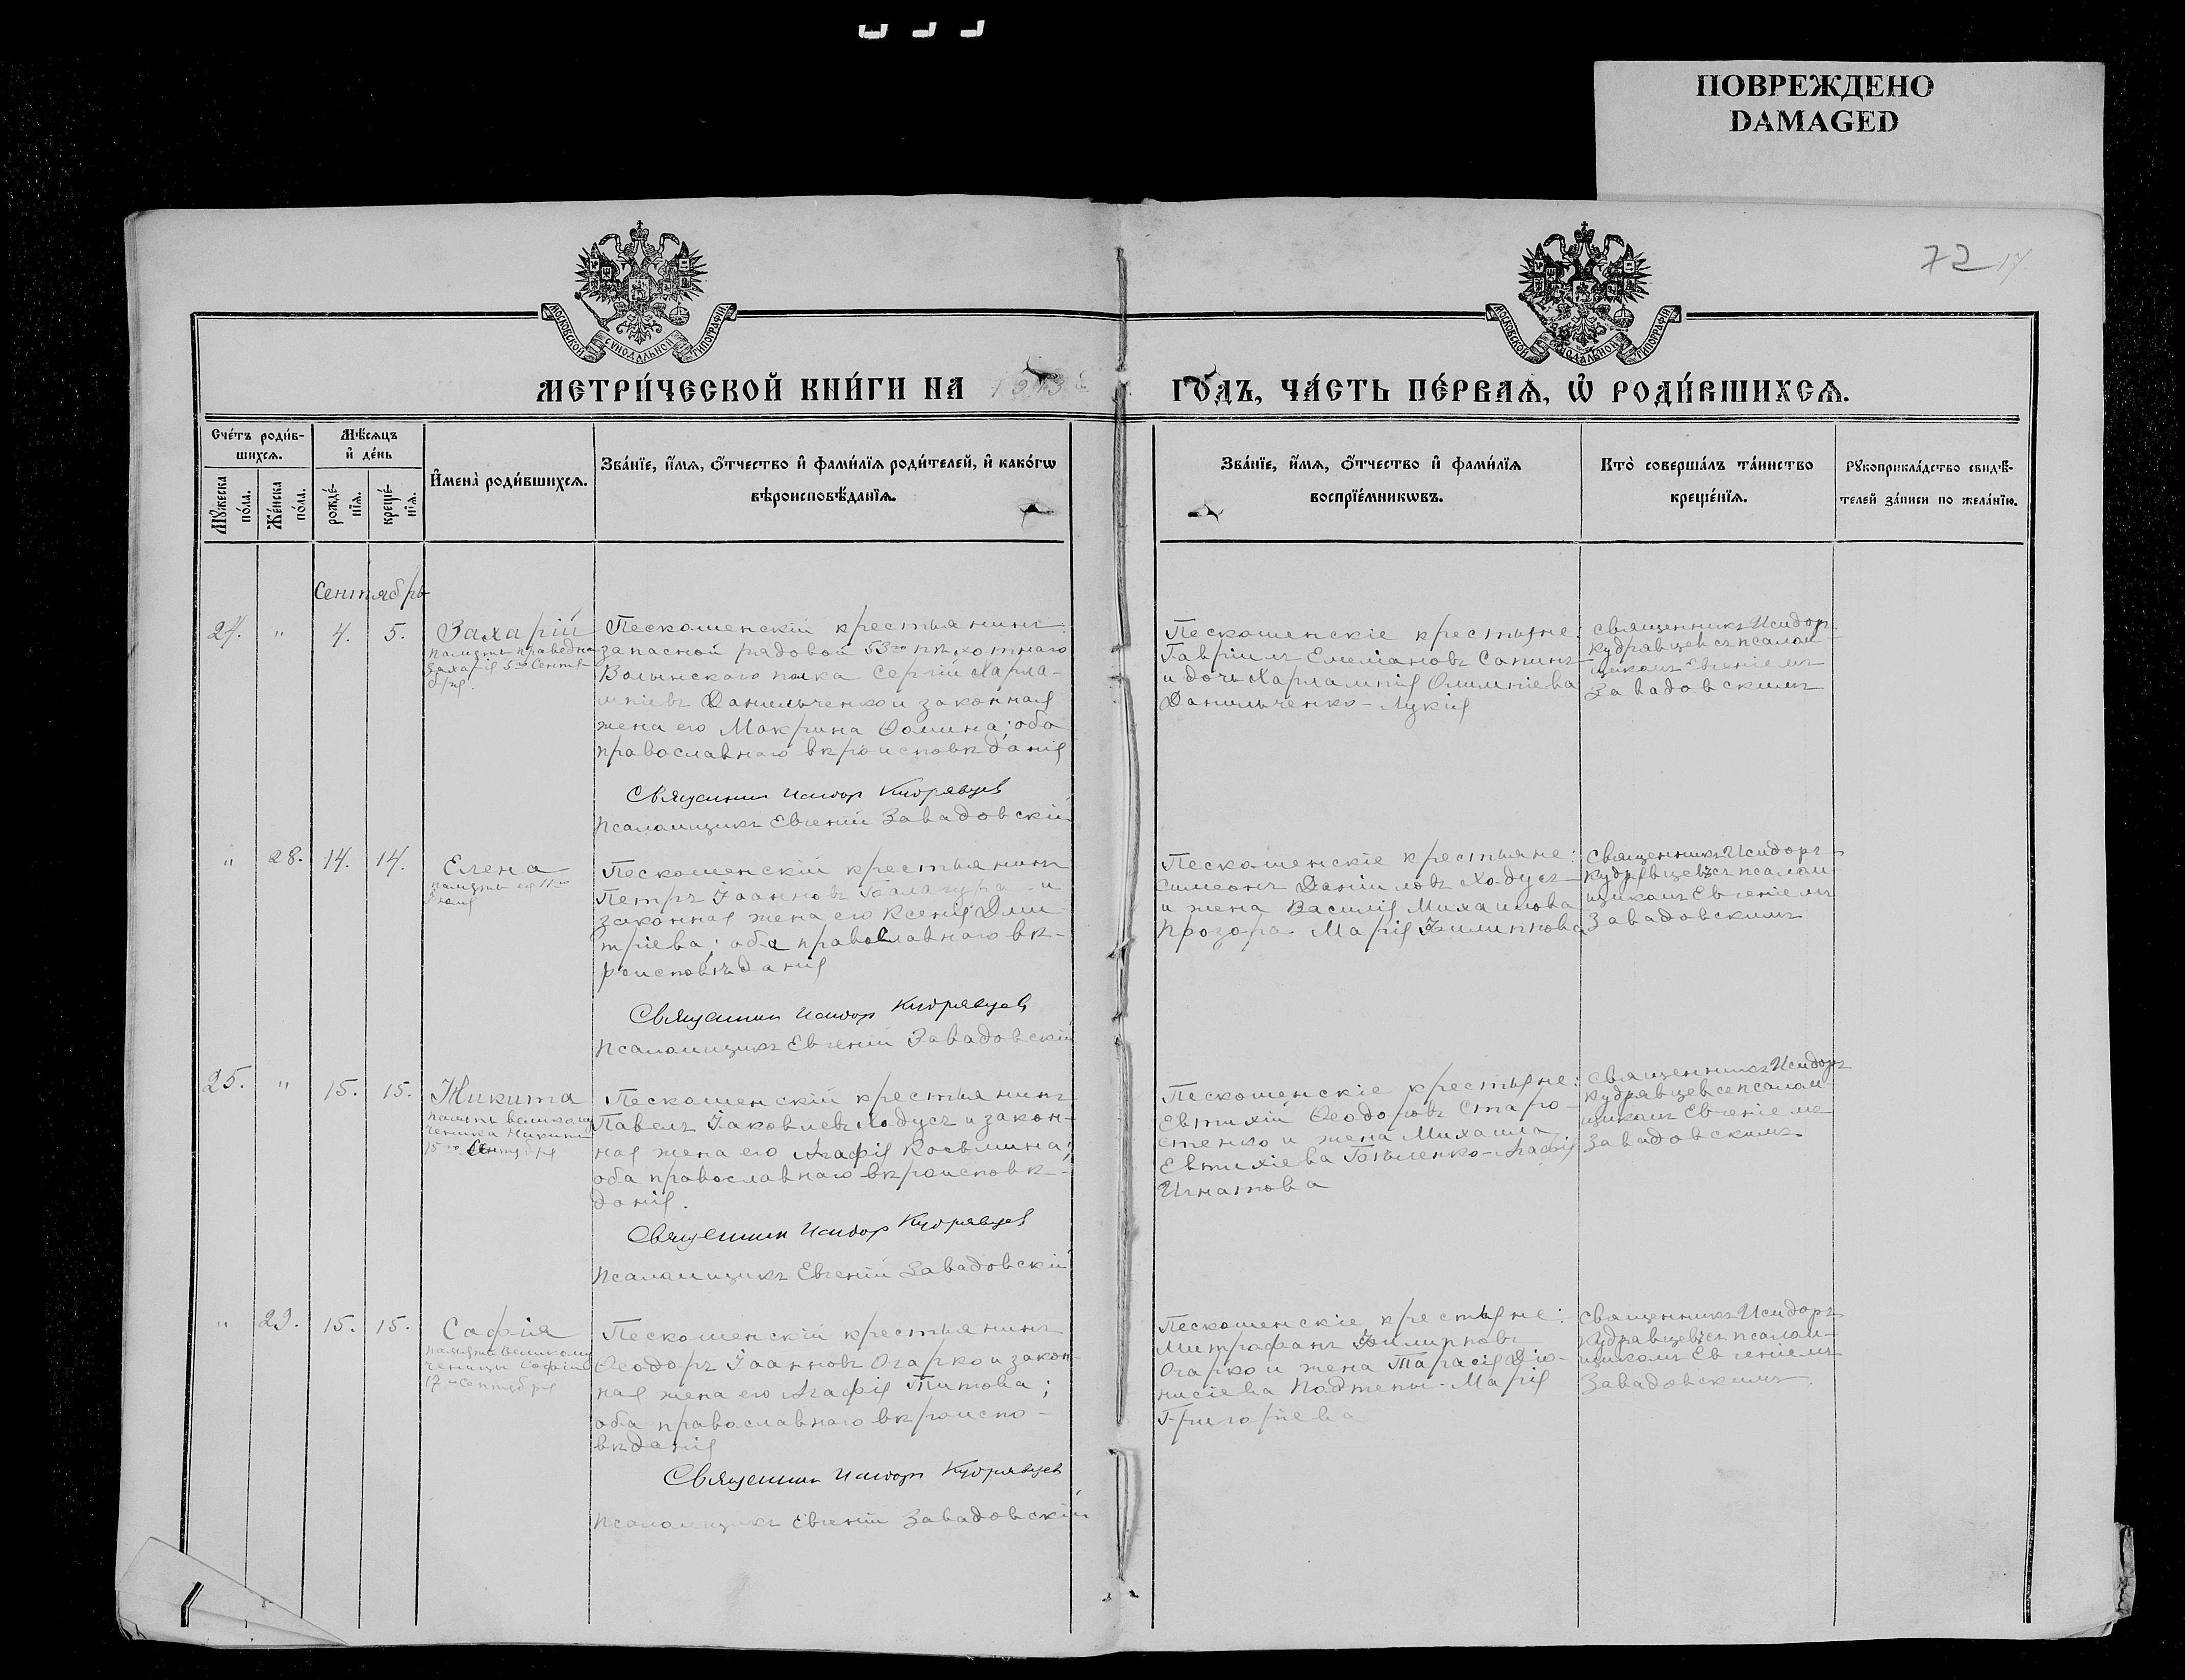 ПОВРЕЖДЕНО
DAMAGED
72
МОСКОВСКОЙ СУНОДАЛЬНОЙ ТИПОГРАФІИ
МОСКОВСКОЙ СУНОДАЛЬНОЙ ТИПОГРАФІИ
МЕТРИ́ЧЕСКОЙ КНИ́ГИ НА 1913
ГО́ДЪ, ЧА́СТЬ ПЕ́РВАѦ, Ѡ҆ РОДИ́ВШИХСѦ.
Сче́тъ роди́в-
шихсѧ.
Мꙋ́жеска по́ла.
Же́нска по́ла.
Мѣ́сѧцъ
и҆ де́нь
рожде́-
нїѧ.
креще́-
нїѧ.
И҆мена̀ роди́вшихсѧ.
Зва́нїе, и҆́мѧ, ѻ҆́тчество и҆ фами́лїѧ роди́телей, и҆ како́гѡ
вѣроисповѣ́данїѧ.
Зва́нїе, и҆́мѧ, ѻ҆́тчество и҆ фами́лїѧ
воспрїе́мникѡвъ.
Кто̀ соверша́лъ та́инство
креще́нїѧ.
Рꙋкоприкла́дство свидѣ́-
телей за́писи по жела́нїю.
Сентябрь
24. " 4. 5.
Захарій
память праведна
Захарія 5го Сентя-
бря.
Пескошенскій крестьянинъ
запасной рядовой 53го пѣхотнаго
Волынскаго полка Сергій Харла-
мпіевъ Данильченко и законная
жена его Макрина Ѳомина; оба
православнаго вѣроисповѣданія
Священник Исидор Кудрявцев
Псаломщикъ Евгеній Завадовскій
Пескошенскіе крестьяне:
Гавріилъ Емеліановъ Сапинъ
и дочь Харлампія Олимпіева
Данильченко - Лукія
Священникъ Исидоръ
Кудрявцевъ съ псалом-
щикомъ Евгеніемъ
Завадовскимъ
" 28. 14. 14.
Елена
память ея 11го
Пескошенскій крестьянинъ
Петръ Іоанновъ Балагура и
законная жена его Ксенія Дми-
тріева; оба православнаго вѣ-
роисповѣданія
Священник Исидор Кудрявцев
Псаломщикъ Евгеній Завадовскій
Пескошенскіе крестьяне:
Симеонъ Даніиловъ Ходусъ
и жена Василія Михаилова
Прозора Марія Филиппова
Священникъ Исидоръ
Кудрявцевъ съ псалом-
щикомъ Евгеніемъ
Завадовскимъ
25. " 15. 15.
Никита
память великому
ченика Никиты
15го Сентября
Пескошенскій крестьянинъ
Павелъ Іаковлевъ Ходусъ и закон-
ная жена его Агафія Косьмина;
оба православнаго вѣроисповѣ-
данія.
Священник Исидор Кудрявцев
Псаломщикъ Евгеній Завадовскій
Пескошенскіе крестьяне:
Евтихій Ѳеодоровъ Старо-
стенко и жена Михаила
Евтихіева - Агафія
Игнатова
Священникъ Исидоръ
Кудрявцевъ съ псалом-
щикомъ Евгеніемъ
Завадовскимъ
" 29. 15. 15.
Софія
память великому
ченицы Софіи
17го Сентября
Пескошенскій крестьянинъ
Ѳеодоръ Іоанновъ Огарко и закон-
ная жена его Агафія Титова;
оба православнаго вѣроиспо-
вѣданія
Священник Исидор Кудрявцев
Псаломщикъ Евгеній Завадовскій
Пескошенскіе крестьяне:
Митрофанъ Филипповъ
Огарко и жена Тарасія Діо-
нисіева - Марія
Григоріева
Священникъ Исидоръ
Кудрявцевъ съ псалом-
щикомъ Евгеніемъ
Завадовскимъ.